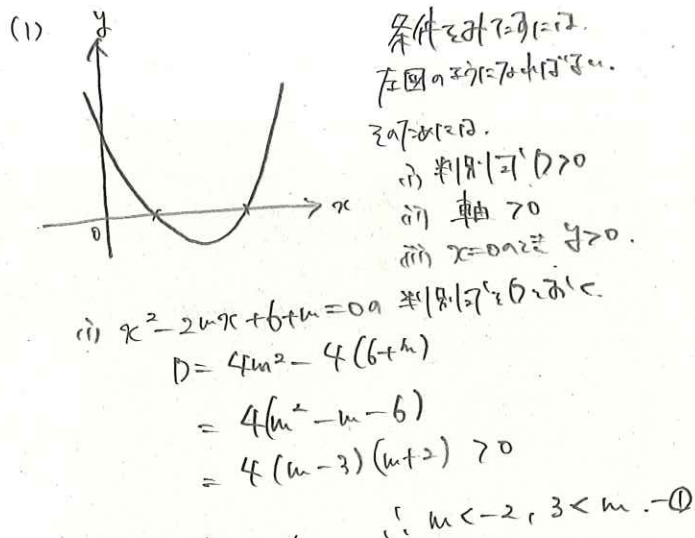 (1)
y
条件をみたすには、
左図のようになればよい。
そのためには、
(i) 判別式 D>0
(ii) 軸 >0
(iii) x=0のとき y>0.
x
0
(i) x²-2mx+6+m=0の 判別式をDとおく.
D= 4m²-4(6+m)
= 4(m²-m-6)
= 4(m-3)(m+2) >0
∴ m<-2, 3<m. -①